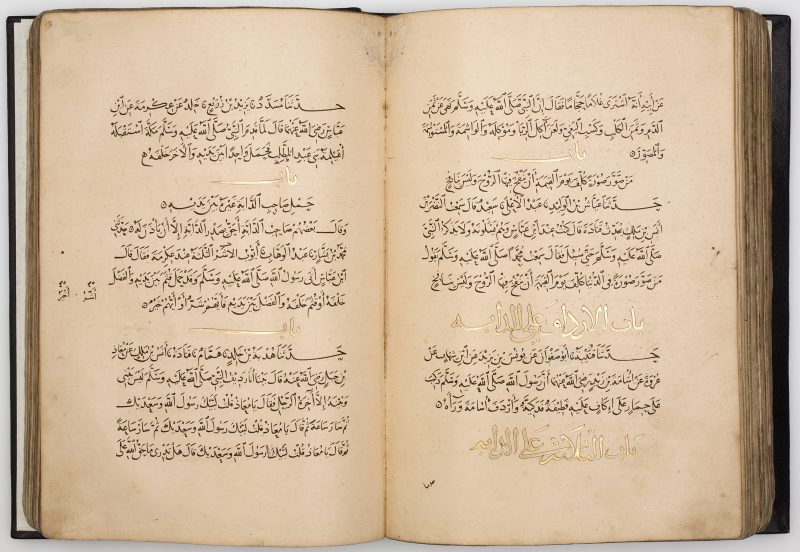 عن أبيه أنه اشترى غلاما حجاما فقال إن النبي صلى الله عليه وسلم نهى عن ثمن
الدم وثمن الكلب وكسب البغي ولعن آكل الربا وموكله والواشمة والمستوشمة
والمصور
باب
من صور صورة كلف يوم القيمة أن ينفخ فيها الروح وليس بنافخ
حدثنا عياش بن الوليد نا عبد الأعلى نا سعيد قال سمعت النضر بن
انس بن مالك يحدث قتادة قال كنت عند ابن عباس وهم يسألونه ولا يذكر النبي
صلى الله عليه وسلم حتى سئل فقال سمعت محمدا صلى الله عليه وسلم يقول
من صور صورة في الدنيا كلف يوم القيمة أن ينفخ فيها الروح وليس بنافخ
باب الارتداف على الدابه
حدثنا قتيبة نا ابو صفوان عن يونس بن يزيد عن ابن شهاب عن
عروة عن اسامة بن زيد رضي الله عنهما أن رسول الله صلى الله عليه وسلم ركب
على حمار على إكاف عليه قطيفة فدكية وأردف اسامة وراءه
باب الثلاثة على الدابه
حدثنا مسدد نا يزيد بن زريع نا خالد عن عكرمة عن ابن
عباس رضي الله عنهما قال لما قدم النبي صلى الله عليه وسلم مكة استقبله
أغيلمة بني عبد المطلب فحمل واحدا بين يديه والآخر خلفه
باب
حمل صاحب الدابة غيره بين يديه
وقال بعضهم صاحب الدابة أحق بصدر الدابة إلا أن يأذن له حدثني
محمد بن بشار نا عبد الوهاب نا أيوب الاشر الثلثة عند عكرمة فقال قال
ابن عباس أتى رسول الله صلى الله عليه وسلم وقد حمل قثم بين يديه والفضل
خلفه أو قثم خلفه والفضل بين يديه فأيهم شر أو أيهم خير
باب
حدثنا هدبة بن خالد نا همام نا قتادة نا انس بن مالك عن معاذ
بن جبل رضي الله عنه قال بينا أنا رديف النبي صلى الله عليه وسلم ليس بيني
وبينه إلا أخرة الرحل فقال يا معاذ قلت لبيك رسول الله وسعديك
ثم سار ساعة ثم قال يا معاذ قلت لبيك رسول الله وسعديك ثم سار ساعة
ثم قال يا معاذ قلت لبيك رسول الله وسعديك قال هل تدري ما حق الله على